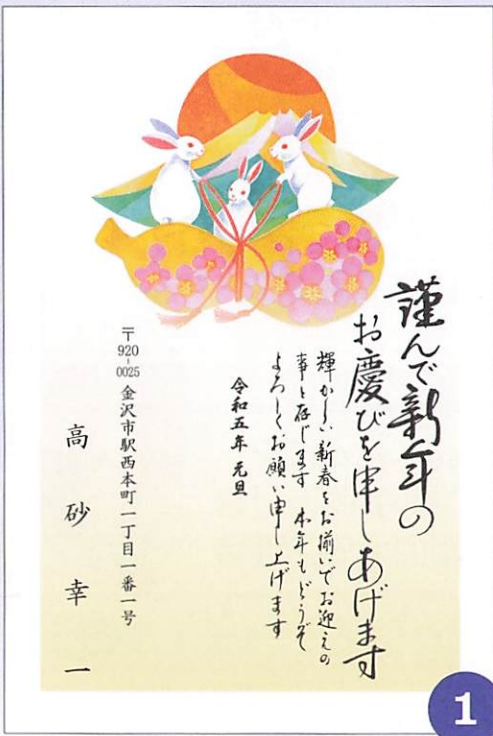 謹んで新年の
お慶びを申しあげます
輝かしい新春をお揃いでお迎えの
事と存じます 本年もどうぞ
よろしくお願い申し上げます
令和五年 元旦
〒920-0025 金沢市駅西本町一丁目一番一号
高砂幸一
1